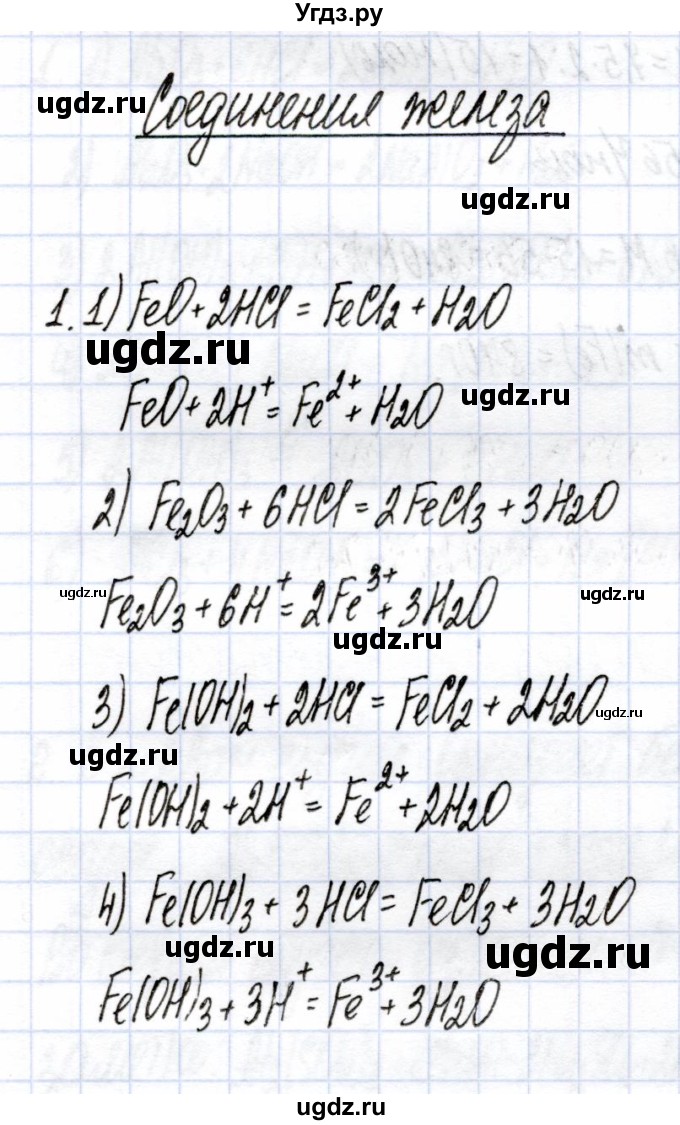 Угдз.ру
ugdz.ru
Соединения железа
ugdz.ru
1. 1) FeO + 2HCl = FeCl₂ + H₂O
ugdz.ru
FeO + 2H⁺ = Fe²⁺ + H₂O
ugdz.ru
2) Fe₂O₃ + 6HCl = 2FeCl₃ + 3H₂O
ugdz.ru
ugdz.ru
Fe₂O₃ + 6H⁺ = 2Fe³⁺ + 3H₂O
ugdz.ru
3) Fe(OH)₂ + 2HCl = FeCl₂ + 2H₂O
ugdz.ru
ugdz.ru
Fe(OH)₂ + 2H⁺ = Fe²⁺ + 2H₂O
4) Fe(OH)₃ + 3HCl = FeCl₃ + 3H₂O
ugdz.ru
ugdz.ru
Fe(OH)₃ + 3H⁺ = Fe³⁺ + 3H₂O
ugdz.ru